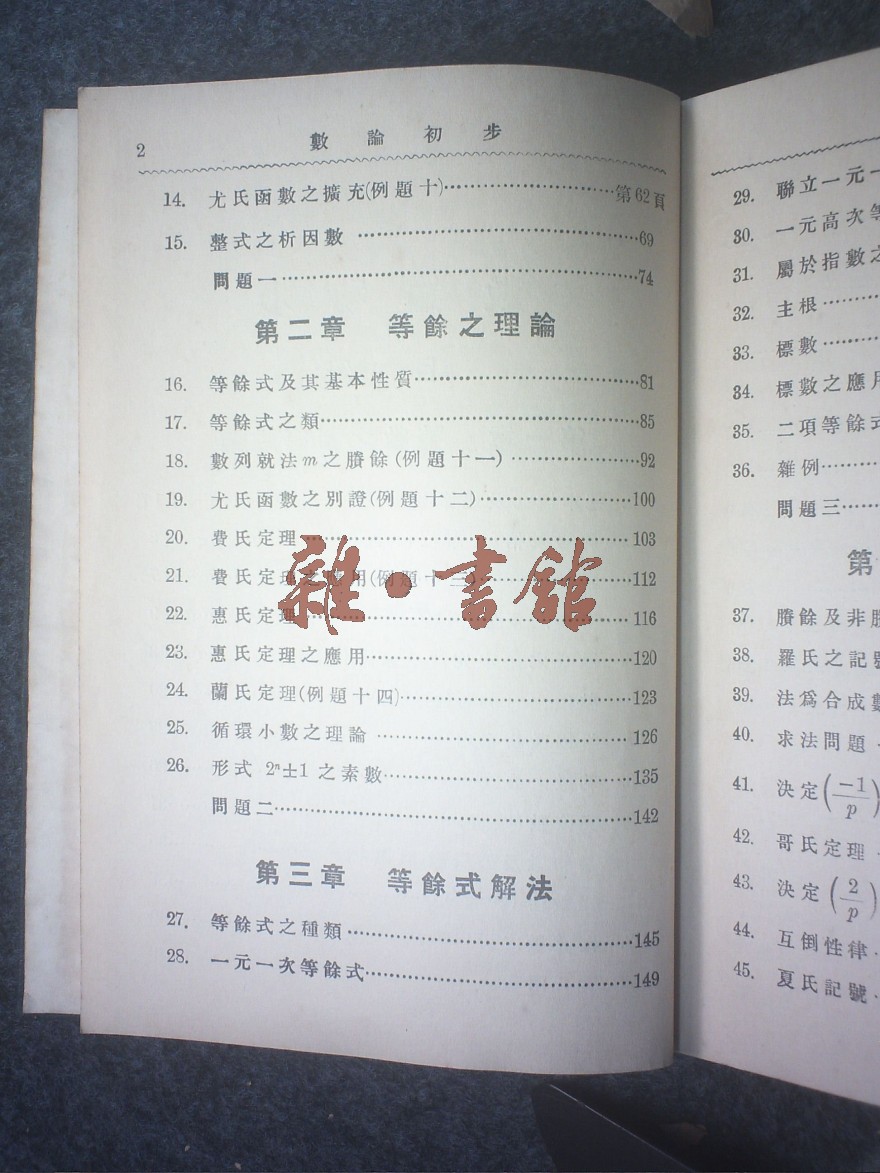 2
數論初步
14. 尤氏函數之擴充(例題十)……第62頁
15. 整式之析因數……69
問題一……74
第二章 等餘之理論
16. 等餘式及其基本性質……81
17. 等餘式之類……85
18. 數列就法m之賸餘(例題十一)……92
19. 尤氏函數之別證(例題十二)……100
20. 費氏定理……103
21. 費氏定理之應用(例題十三)……112
22. 惠氏定理……116
23. 惠氏定理之應用……120
24. 蘭氏定理(例題十四)……123
25. 循環小數之理論……126
26. 形式 2ⁿ±1 之素數……135
問題二……142
第三章 等餘式解法
27. 等餘式之種類……145
28. 一元一次等餘式……149
雜·書館
29. 聯立一元一
30. 一元高次等
31. 屬於指數之
32. 主根……
33. 標數……
34. 標數之應用
35. 二項等餘式
36. 雜例……
問題三……
第
37. 賸餘及非賸
38. 羅氏之記號
39. 法爲合成數
40. 求法問題
41. 決定(−1/p)
42. 哥氏定理
43. 決定(2/p)
44. 互倒性律
45. 夏氏記號